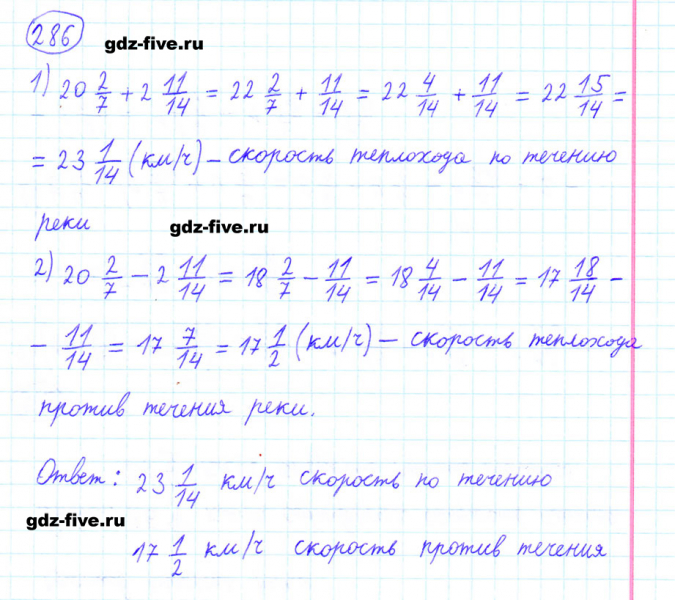 286 gdz-five.ru
1) 20 2/7 + 2 11/14 = 22 2/7 + 11/14 = 22 4/14 + 11/14 = 22 15/14 =
= 23 1/14 (км/ч) – скорость теплохода по течению
реки gdz-five.ru
2) 20 2/7 – 2 11/14 = 18 2/7 – 11/14 = 18 4/14 – 11/14 = 17 18/14 –
– 11/14 = 17 7/14 = 17 1/2 (км/ч) – скорость теплохода
против течения реки.
Ответ: 23 1/14 км/ч скорость по течению
gdz-five.ru
17 1/2 км/ч скорость против течения